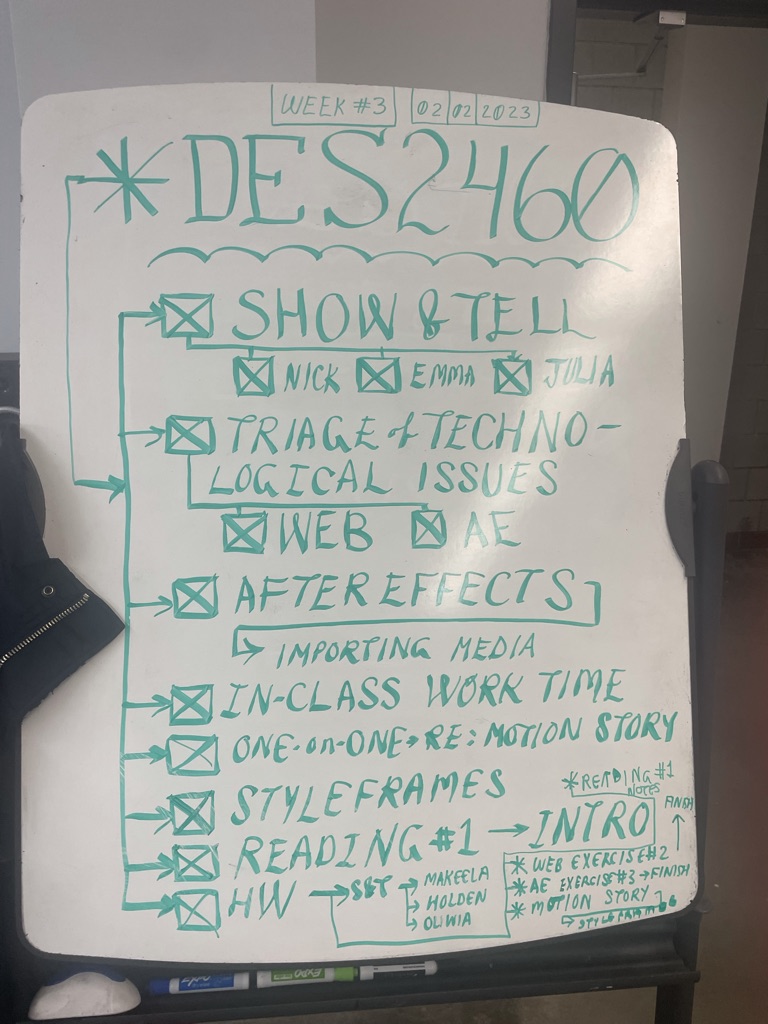 WEEK #3 02 02 2023
*DES2460
SHOW & TELL
NICK EMMA JULIA
TRIAGE of TECHNO-
LOGICAL ISSUES
WEB AE
AFTER EFFECTS
IMPORTING MEDIA
IN-CLASS WORK TIME
ONE-on-ONE→RE: MOTION STORY
STYLEFRAMES
*READING #1
NOTES
READING #1 → INTRO
FINISH
HW → S&T → MAKEELA
→ HOLDEN
→ OLIVIA
* WEB EXERCISE #2
* AE EXERCISE #3 → FINISH
* MOTION STORY
→ STYLEFRAMES
EXPO
EXPO